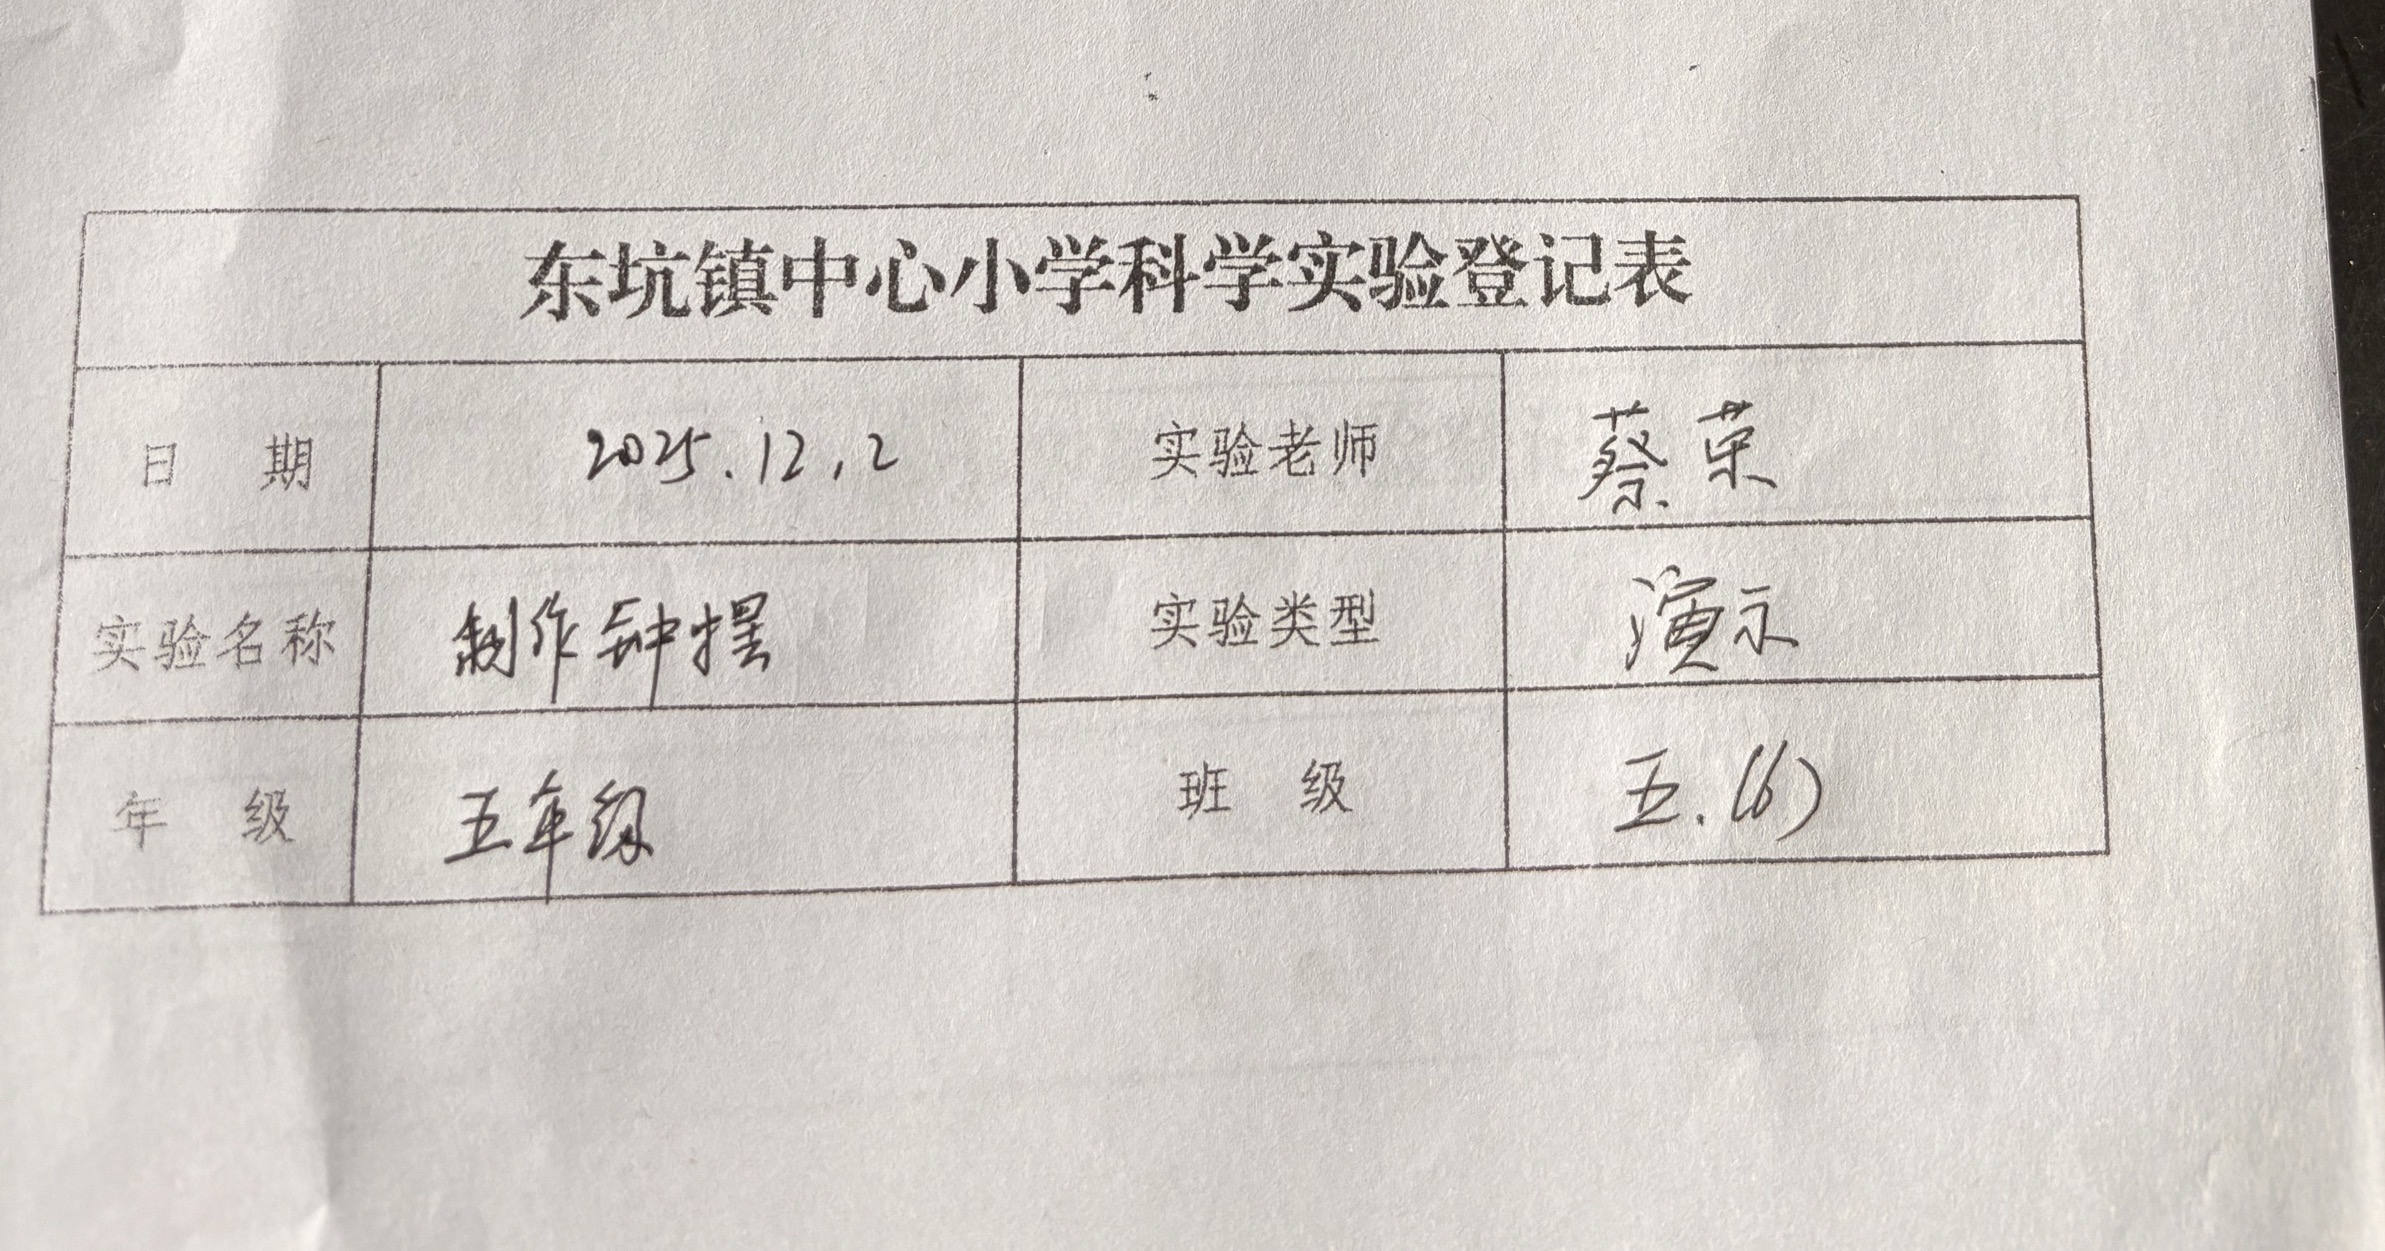 东坑镇中心小学科学实验登记表
日 期 2025.12.2 实验老师 蔡荣
实验名称 制作钟摆 实验类型 演示
年 级 五年级 班 级 五.(6)